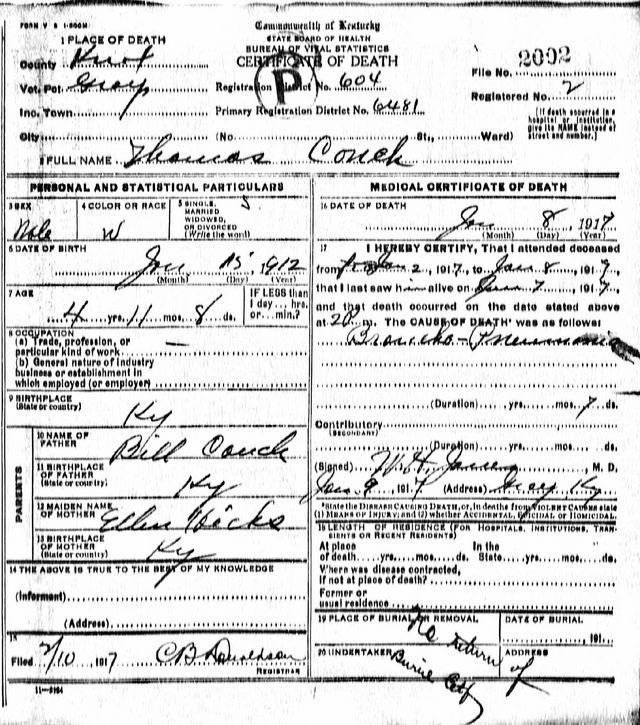 FORM V S 1-500M
Commonwealth of Kentucky
STATE BOARD OF HEALTH
BUREAU OF VITAL STATISTICS
CERTIFICATE OF DEATH
1 PLACE OF DEATH
County Knox
Vot. Pct. Gray
Inc. Town
City
Registration District No. 604
Primary Registration District No. 6481
(No. St., Ward)
P
File No. 2002
Registered No. 2
[If death occurred in a hospital or institution, give its NAME instead of street and number.]
2 FULL NAME Thomas Couch
PERSONAL AND STATISTICAL PARTICULARS
3 SEX Male
4 COLOR OR RACE W
5 SINGLE, MARRIED WIDOWED, OR DIVORCED (Write the word) S
6 DATE OF BIRTH
Jan 15, 1912
(Month) (Day) (Year)
7 AGE
4 yrs. 11 mos. 8 ds.
IF LESS than 1 day... hrs. or... min.?
8 OCCUPATION
(a) Trade, profession, or
particular kind of work —
(b) General nature of industry
business or establishment in
which employed (or employer)
9 BIRTHPLACE
(State or country) Ky
PARENTS
10 NAME OF FATHER Bill Couch
11 BIRTHPLACE OF FATHER
(State or country) Ky
12 MAIDEN NAME OF MOTHER Ellen Hicks
13 BIRTHPLACE OF MOTHER
(State or country) Ky
14 THE ABOVE IS TRUE TO THE BEST OF MY KNOWLEDGE
(Informant)
(Address)
15
Filed 2/10 1917 C B Donaldson
REGISTRAR
11-3184
MEDICAL CERTIFICATE OF DEATH
16 DATE OF DEATH
Jan 8, 1917
(Month) (Day) (Year)
17 I HEREBY CERTIFY, That I attended deceased
from Jan 2, 1917, to Jan 8, 1917,
that I last saw him alive on Jan 7, 1917,
and that death occurred on the date stated above
at m. The CAUSE OF DEATH* was as follows:
Broncho-Pneumonia
(Duration) yrs. mos. 7 ds.
Contributory
(SECONDARY)
(Duration) yrs. mos. ds.
(Signed) , M. D.
Jan 9, 1917 (Address) Gray Ky
*State the DISEASE CAUSING DEATH, or, in deaths from VIOLENT CAUSES state
(1) MEANS OF INJURY; and (2) whether ACCIDENTAL, SUICIDAL or HOMICIDAL.
18 LENGTH OF RESIDENCE (FOR HOSPITALS, INSTITUTIONS, TRANSIENTS OR RECENT RESIDENTS)
At place of death yrs. mos. ds. In the State yrs. mos. ds.
Where was disease contracted,
If not at place of death?
Former or
usual residence
19 PLACE OF BURIAL OR REMOVAL
DATE OF BURIAL
, 191
20 UNDERTAKER
ADDRESS
No return of
Burial Ctf